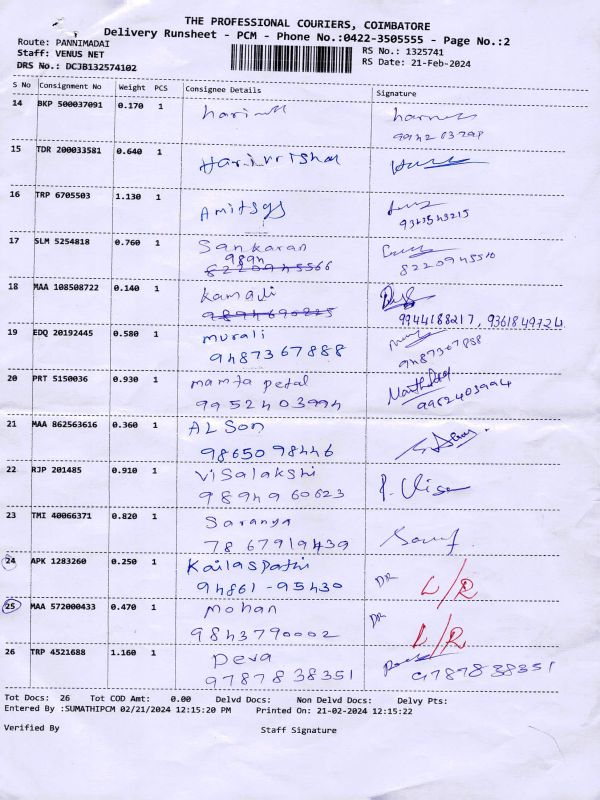 THE PROFESSIONAL COURIERS, COIMBATORE
Delivery Runsheet - PCM - Phone No.:0422-3505555 - Page No.:2
Route: PANNIMADAI
RS No.: 1325741
Staff: VENUS NET
RS Date: 21-Feb-2024
DRS No.: DCJB132574102
S No Consignment No Weight PCS Consignee Details Signature
14 BKP 500037091 0.170 1
15 TDR 200033581 0.640 1 Harivrishna
16 TRP 6705503 1.130 1 Amitsgs
9361543215
17 SLM 5254818 0.760 1 Sankaran
989n
8220945566 8220945510
18 MAA 108508722 0.140 1 Kamadi
9894690225 9944188217, 9361849724
19 EDQ 20192445 0.580 1 murali
9487367888 9487367888
20 PRT 5150036 0.930 1 mamta petal
9952403994 9952403994
21 MAA 862563616 0.360 1 ALSon
9865098446
22 RJP 201485 0.910 1 Visalakshi P. Visa
9894960623
23 TMI 40066371 0.820 1 Saranya
7867919439
24 APK 1283260 0.250 1 Kailaspathi DR L/R
94861-95430
25 MAA 572000433 0.470 1 Mohan DR L/R
9843790002
26 TRP 4521688 1.160 1 Deva
9787838351 9787838351
Tot Docs: 26 Tot COD Amt: 0.00 Delvd Docs: Non Delvd Docs: Delvy Pts:
Entered By :SUMATHIPCM 02/21/2024 12:15:20 PM Printed On: 21-02-2024 12:15:22
Verified By Staff Signature